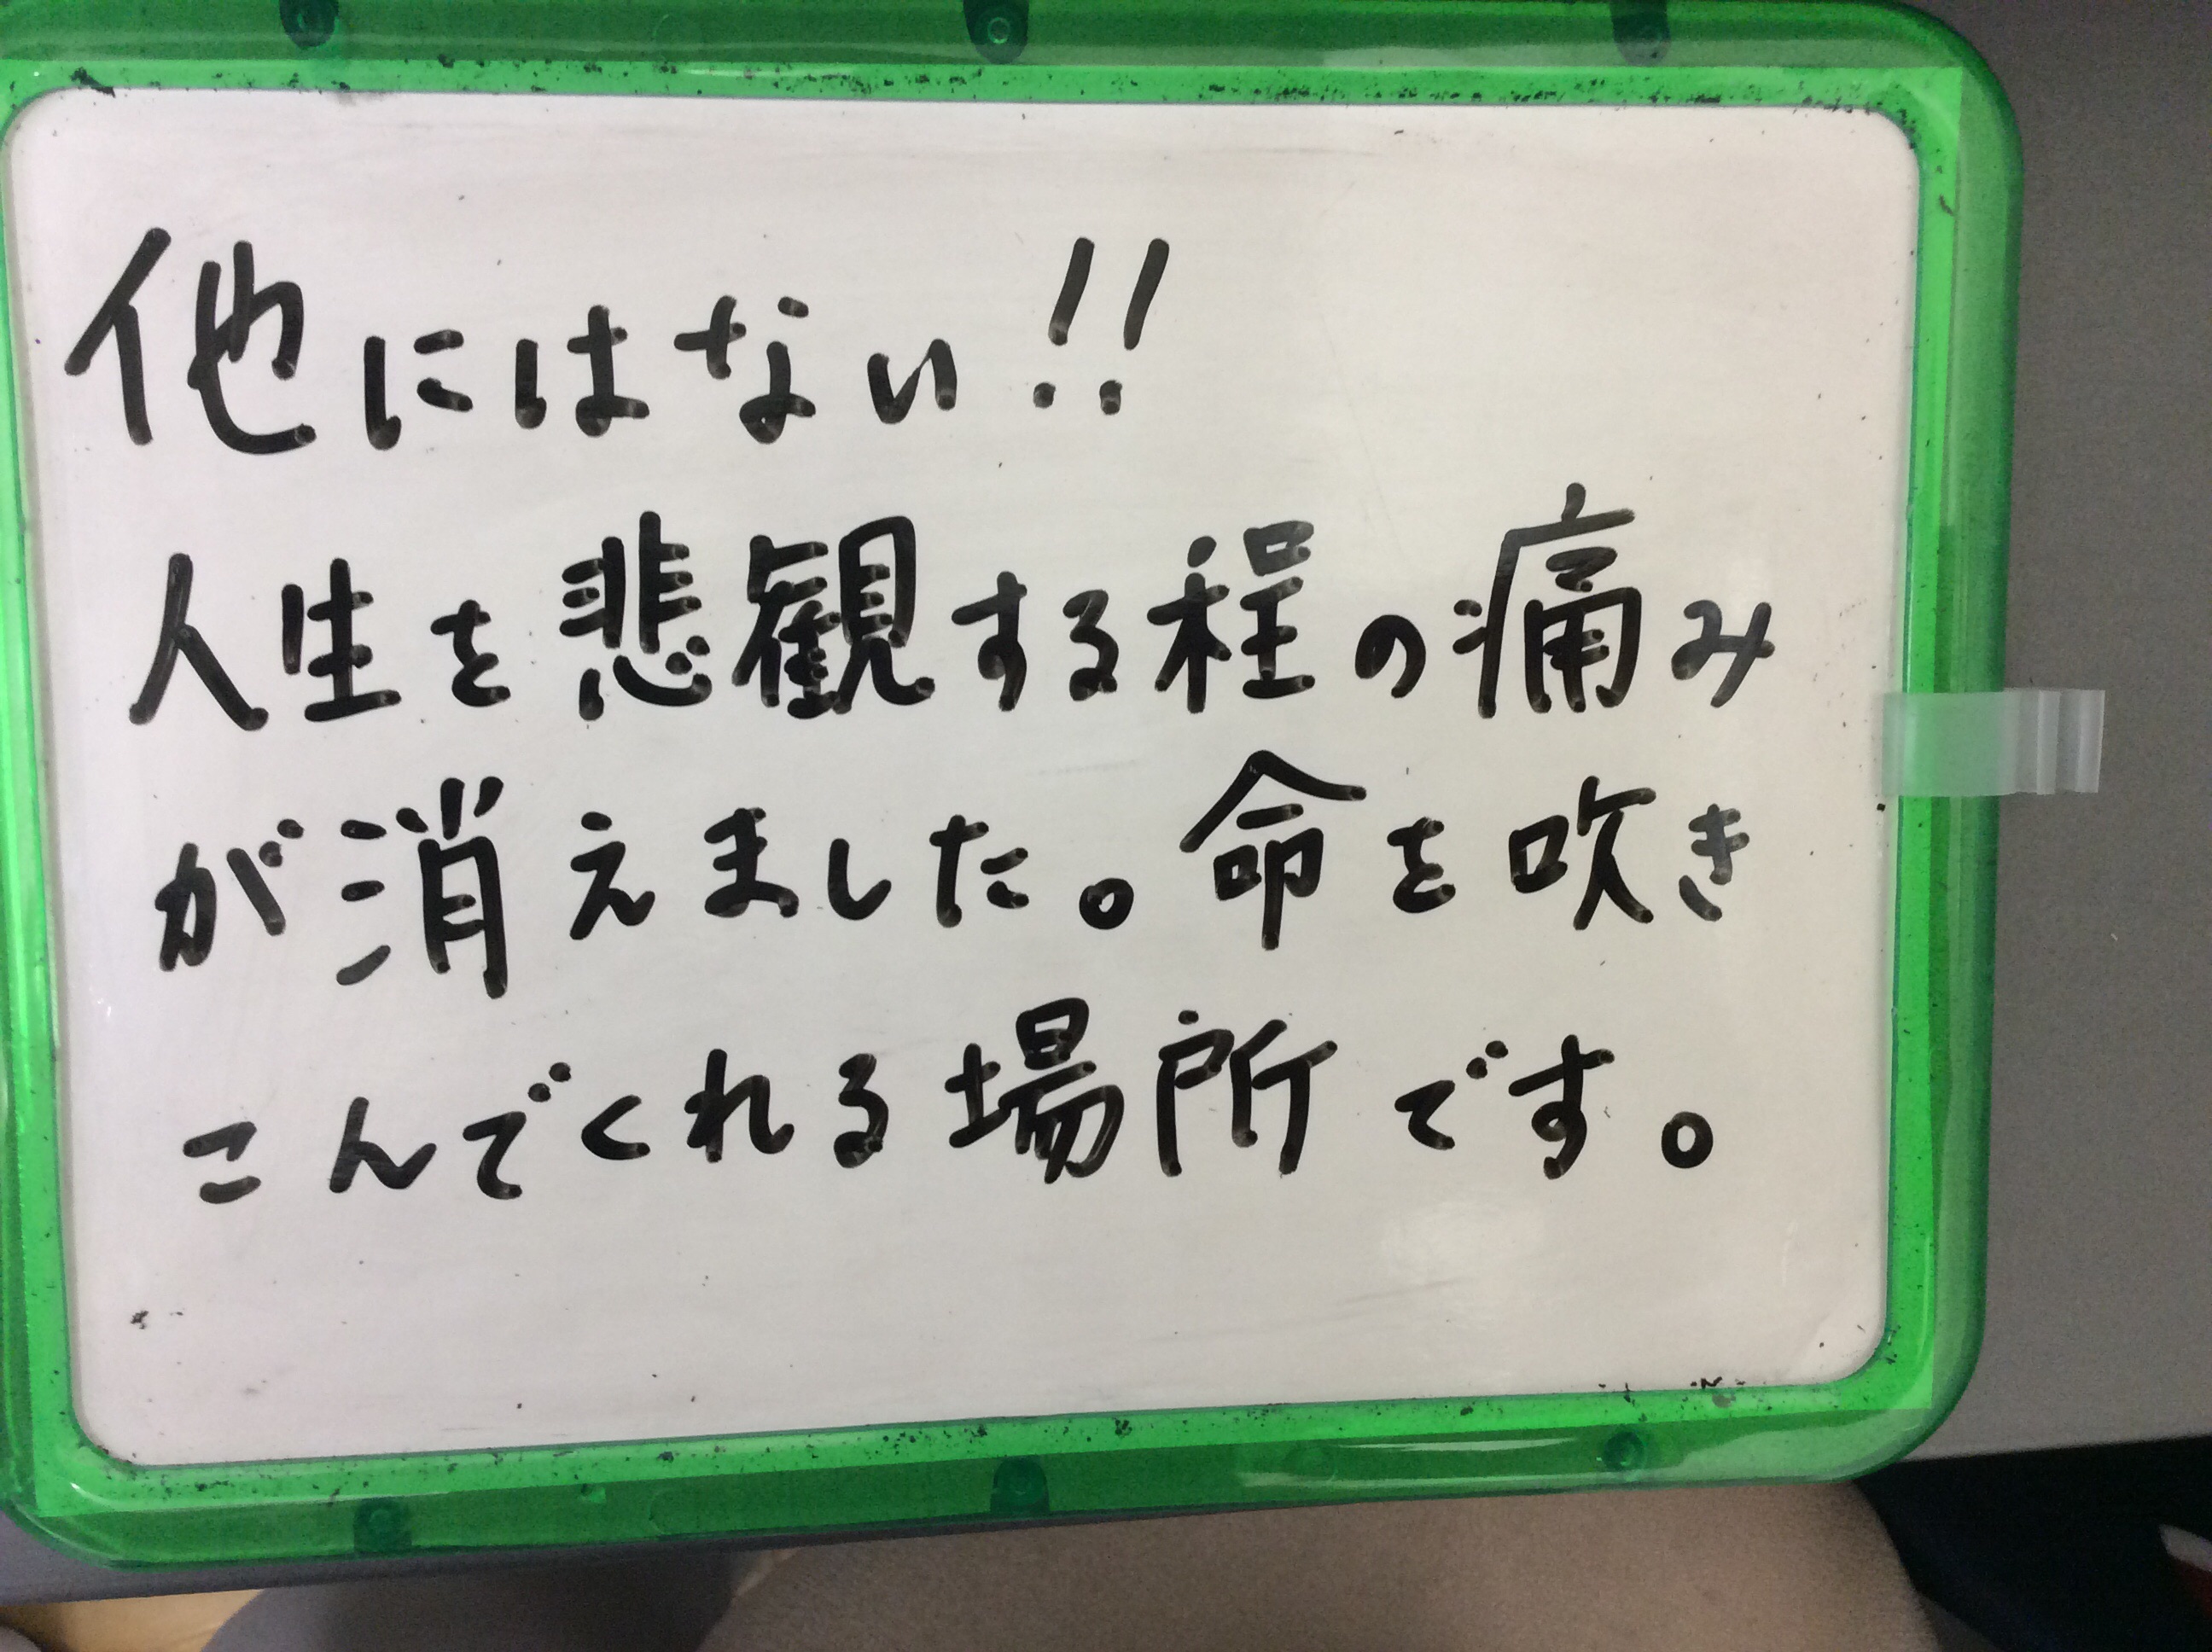 他にはない!!
人生を悲観する程の痛み
が消えました。命を吹き
こんでくれる場所です。